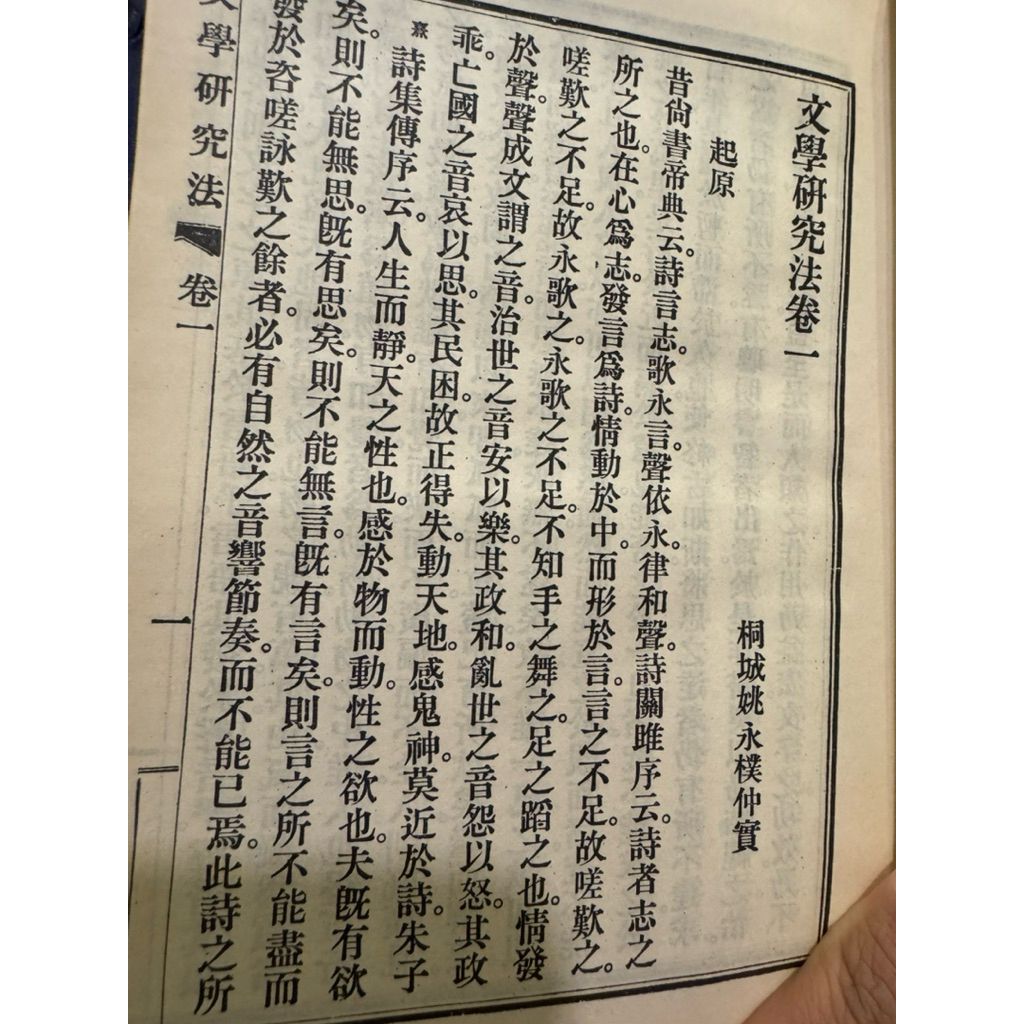 文學研究法卷一
起原
桐城姚永樸仲實
昔尙書帝典云。詩言志。歌永言。聲依永。律和聲。詩關雎序云。詩者志之
所之也。在心爲志。發言爲詩。情動於中。而形於言。言之不足。故嗟歎之。
嗟歎之不足。故永歌之。永歌之不足。不知手之舞之。足之蹈之也。情發
於聲。聲成文謂之音。治世之音安以樂。其政和。亂世之音怨以怒。其政
乖。亡國之音哀以思。其民困。故正得失。動天地。感鬼神。莫近於詩。朱子
熹詩集傳序云。人生而靜。天之性也。感於物而動。性之欲也。夫旣有欲
矣。則不能無思。旣有思矣。則不能無言。旣有言矣。則言之所不能盡。而
發於咨嗟詠歎之餘者。必有自然之音響節奏。而不能已焉。此詩之所
文學研究法 卷一
一